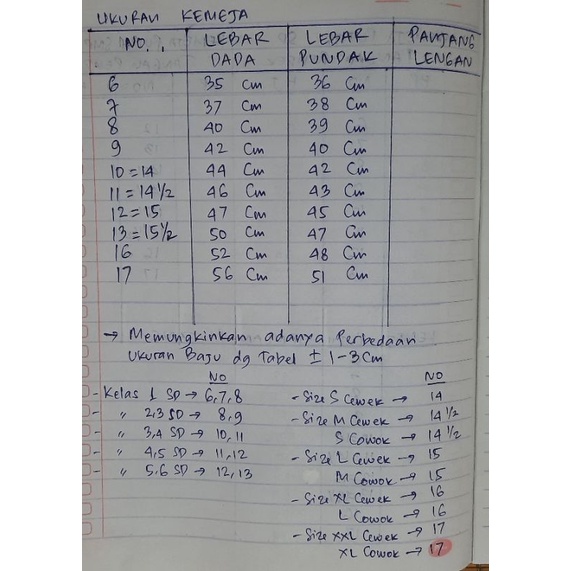 UKURAN KEMEJA
NO. LEBAR DADA LEBAR PUNDAK PANJANG LENGAN
6 35 Cm 36 Cm
7 37 Cm 38 Cm
8 40 Cm 39 Cm
9 42 Cm 40 Cm
10 = 14 44 Cm 42 Cm
11 = 14 1/2 46 Cm 43 Cm
12 = 15 47 Cm 45 Cm
13 = 15 1/2 50 Cm 47 Cm
16 52 Cm 48 Cm
17 56 Cm 51 Cm
→ Memungkinkan adanya Perbedaan
Ukuran Baju dg Tabel ± 1-3 Cm
NO
- Kelas 1 SD → 6,7,8
- " 2,3 SD → 8,9
- " 3,4 SD → 10,11
- " 4,5 SD → 11,12
- " 5,6 SD → 12,13
NO
- Size S Cewek → 14
- Size M Cewek → 14 1/2
S Cowok → 14 1/2
- Size L Cewek → 15
M Cowok → 15
- Size XL Cewek → 16
L Cowok → 16
- Size XXL Cewek → 17
XL Cowok → 17